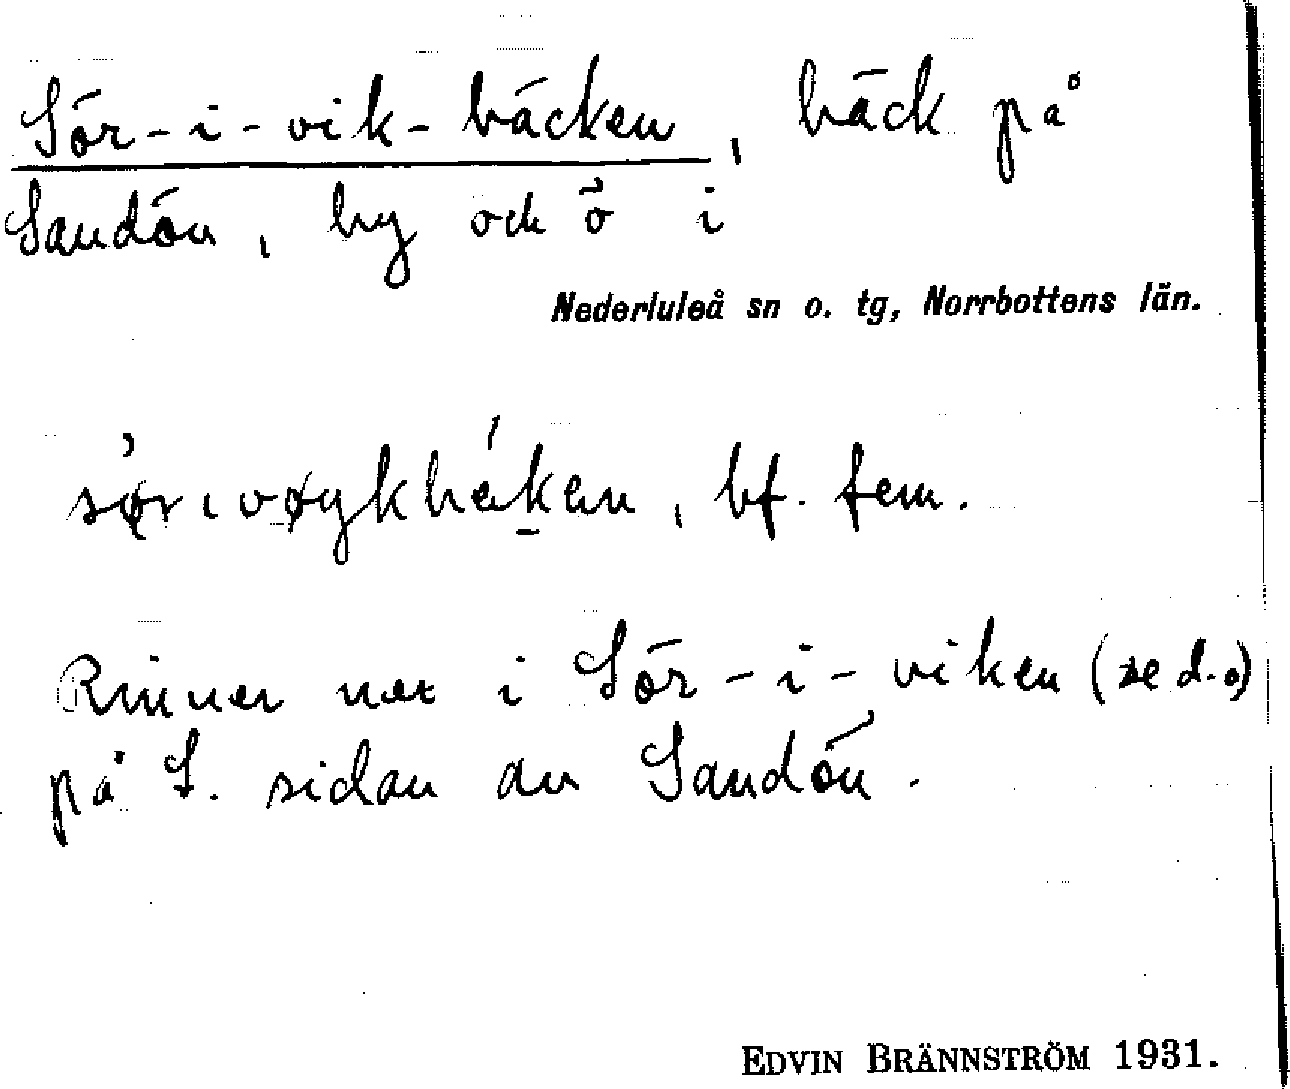 Sör-i-vik-bäcken, bäck på
Sandön, by och ö i
Nederluleå sn o. tg, Norrbottens län.
bf. fem.
Rinner ner i Sör-i-viken (se d.o)
på S. sidan av Sandön.
EDVIN BRÄNNSTRÖM 1931.